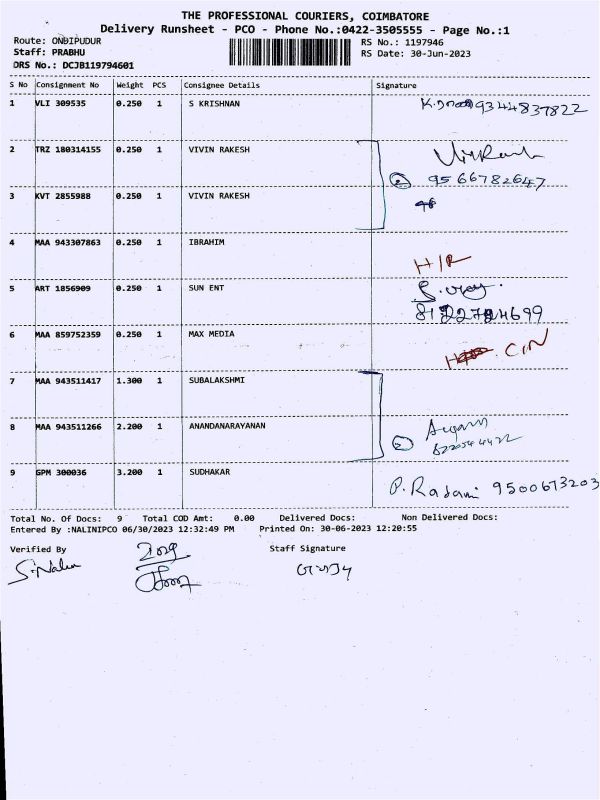 THE PROFESSIONAL COURIERS, COIMBATORE
Delivery Runsheet - PCO - Phone No.:0422-3505555 - Page No.:1
Route: ONDIPUDUR RS No.: 1197946
Staff: PRABHU RS Date: 30-Jun-2023
DRS No.: DCJB119794601
S No Consignment No Weight PCS Consignee Details Signature
1 VLI 309535 0.250 1 S KRISHNAN 9344837822
2 TRZ 180314155 0.250 1 VIVIN RAKESH
2 9566782647
3 KVT 2855988 0.250 1 VIVIN RAKESH
4 MAA 943307863 0.250 1 IBRAHIM
H/R
5 ART 1856909 0.250 1 SUN ENT
6 MAA 859752359 0.250 1 MAX MEDIA
C/N
7 MAA 943511417 1.300 1 SUBALAKSHMI
8 MAA 943511266 2.200 1 ANANDANARAYANAN
2
9 GPM 300036 3.200 1 SUDHAKAR
P. Rajani 9500673203
Total No. Of Docs: 9 Total COD Amt: 0.00 Delivered Docs: Non Delivered Docs:
Entered By :NALINIPCO 06/30/2023 12:32:49 PM Printed On: 30-06-2023 12:20:55
Verified By Staff Signature
S. Nalini